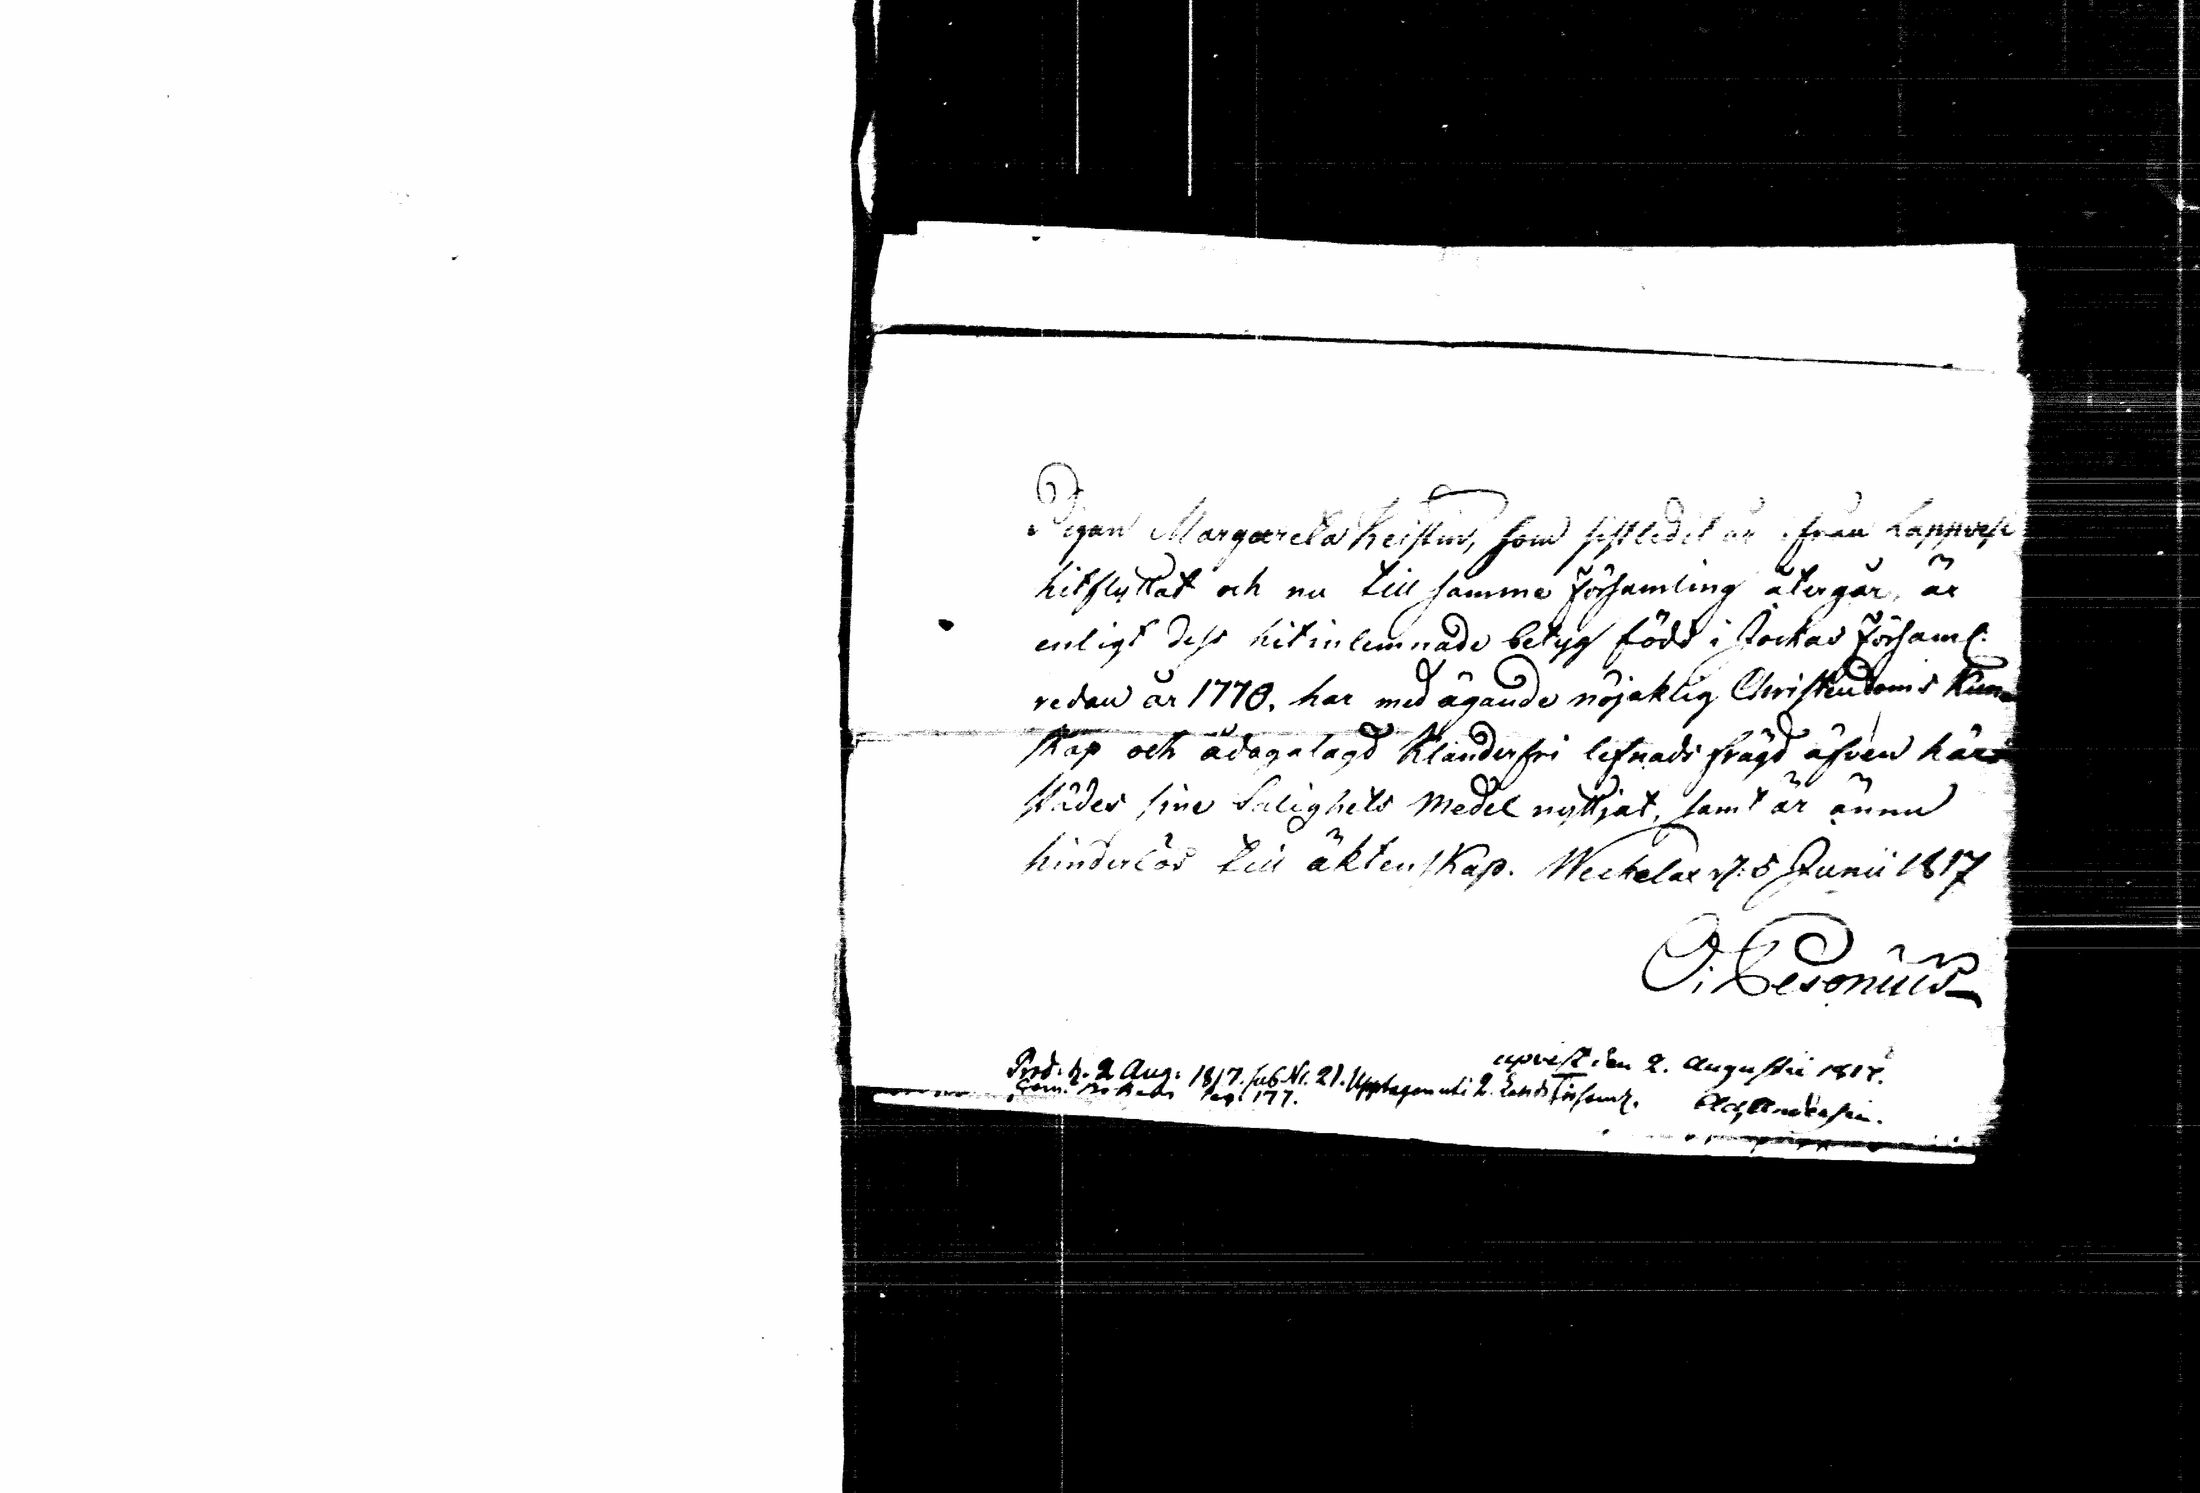 Pigan Margareta Keistin, som sistledit år ifrån Lappvesi
hitflyttat och nu till samme församling återgår, är
enligt dess hitinlemnade betyg född i Jockas församl.
redan år 1770. har med ägande nöjaktig Christendoms Kun-
skap och ådagalagd klanderfri lefnads frägd äfven här-
städes sine Salighets Medel nyttjat, samt är ännu
hinderlös till äktenskap. Weckelax d. 5 Junii 1817
O: Pesonius
Prod. d. 2 Aug. 1817. sub Nr. 21. Upptagen uti L. Lands församl.
pag. 177.
den 2. Augustii 1817.